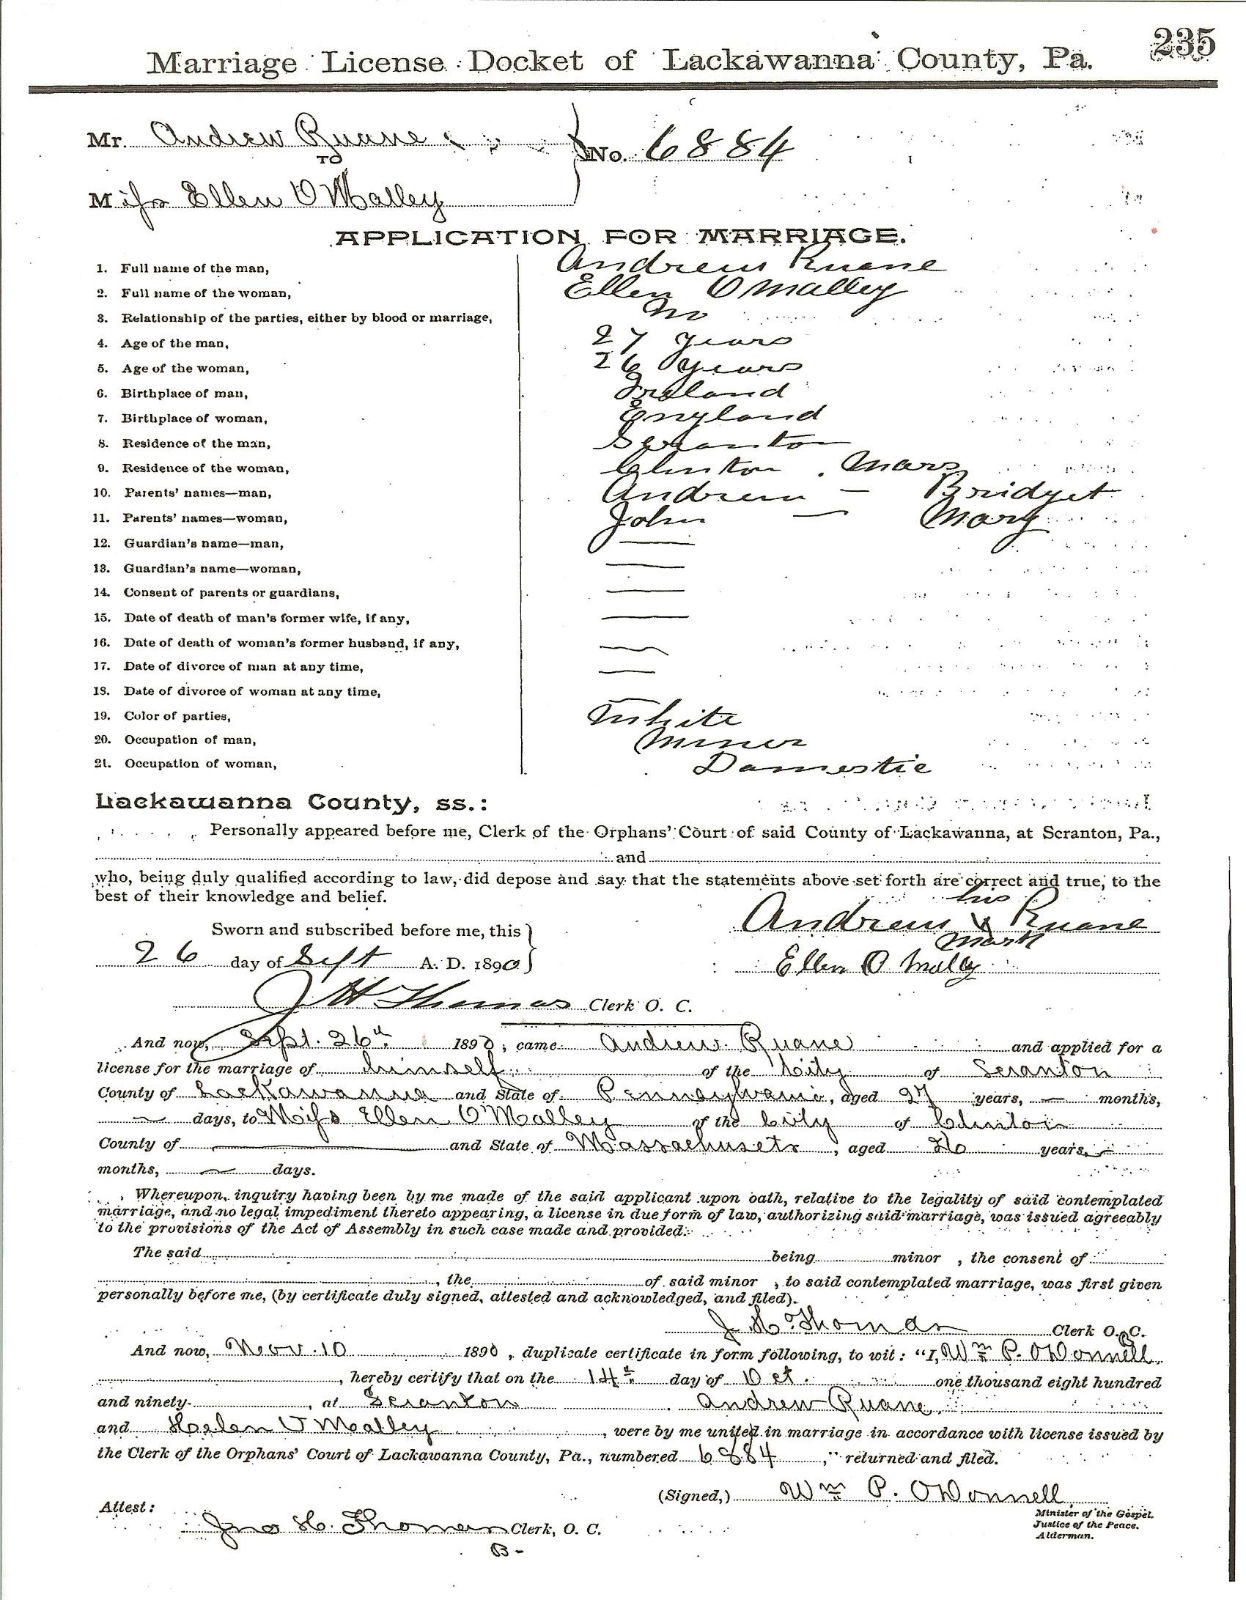 235
Marriage License Docket of Lackawanna County, Pa.
Mr. Andrew Ruane
TO
No. 6884
Miss Ellen O'Malley
APPLICATION FOR MARRIAGE.
1. Full name of the man, Andrew Ruane
2. Full name of the woman, Ellen O Malley
3. Relationship of the parties, either by blood or marriage, No
4. Age of the man, 27 years
5. Age of the woman, 26 years
6. Birthplace of man, Ireland
7. Birthplace of woman, England
8. Residence of the man, Scranton
9. Residence of the woman, Clinton, Mars
10. Parents' names—man, Andrew — Bridget
11. Parents' names—woman, John — Mary
12. Guardian's name—man, —
13. Guardian's name—woman, —
14. Consent of parents or guardians, —
15. Date of death of man's former wife, if any, —
16. Date of death of woman's former husband, if any, —
17. Date of divorce of man at any time, —
18. Date of divorce of woman at any time,
19. Color of parties, White
20. Occupation of man, Miner
21. Occupation of woman, Domestic
Lackawanna County, ss.:
Personally appeared before me, Clerk of the Orphans' Court of said County of Lackawanna, at Scranton, Pa.,
and
who, being duly qualified according to law, did depose and say that the statements above set forth are correct and true, to the
best of their knowledge and belief.
his
Andrew X Ruane
mark
Sworn and subscribed before me, this
26 day of Sept A. D. 1890
Ellen O Mally
J H Thomas Clerk O. C.
And now, Sept. 26th 1890, came Andrew Ruane and applied for a
license for the marriage of himself of the City of Scranton
County of Lackawanna and State of Pennsylvania, aged 27 years, — months,
— days, to Miss Ellen O'Malley of the City of Clinton
County of — and State of Massachusets, aged 26 years, —
months, — days.
Whereupon, inquiry having been by me made of the said applicant upon oath, relative to the legality of said contemplated
marriage, and no legal impediment thereto appearing, a license in due form of law, authorizing said marriage, was issued agreeably
to the provisions of the Act of Assembly in such case made and provided.
The said being minor , the consent of
, the of said minor , to said contemplated marriage, was first given
personally before me, (by certificate duly signed, attested and acknowledged, and filed).
J H Thomas Clerk O. C.
B
And now, Nov. 10 1890, duplicate certificate in form following, to wit: "I, Wm P. O'Donnell
, hereby certify that on the 14th day of Oct. one thousand eight hundred
and ninety , at Scranton Andrew Ruane
and Helen O'Malley , were by me united in marriage in accordance with license issued by
the Clerk of the Orphans' Court of Lackawanna County, Pa., numbered 6884 ," returned and filed.
(Signed,) Wm P. O'Donnell
Minister of the Gospel.
Justice of the Peace.
Alderman.
Attest:
Jno H. Thomas Clerk, O. C.
B-